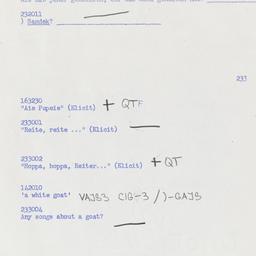 232011
) Sandek?
233
163230
"Ais Pupeis" (Elicit) + QTF
233001
"Reite, reite ..." (Elicit) —
233002
"Hoppa, hoppa, Reiter..." (Elicit) + QT
142010
'a white goat' VAJS3 CIG-3 /)-GAJS
233004
Any songs about a goat?